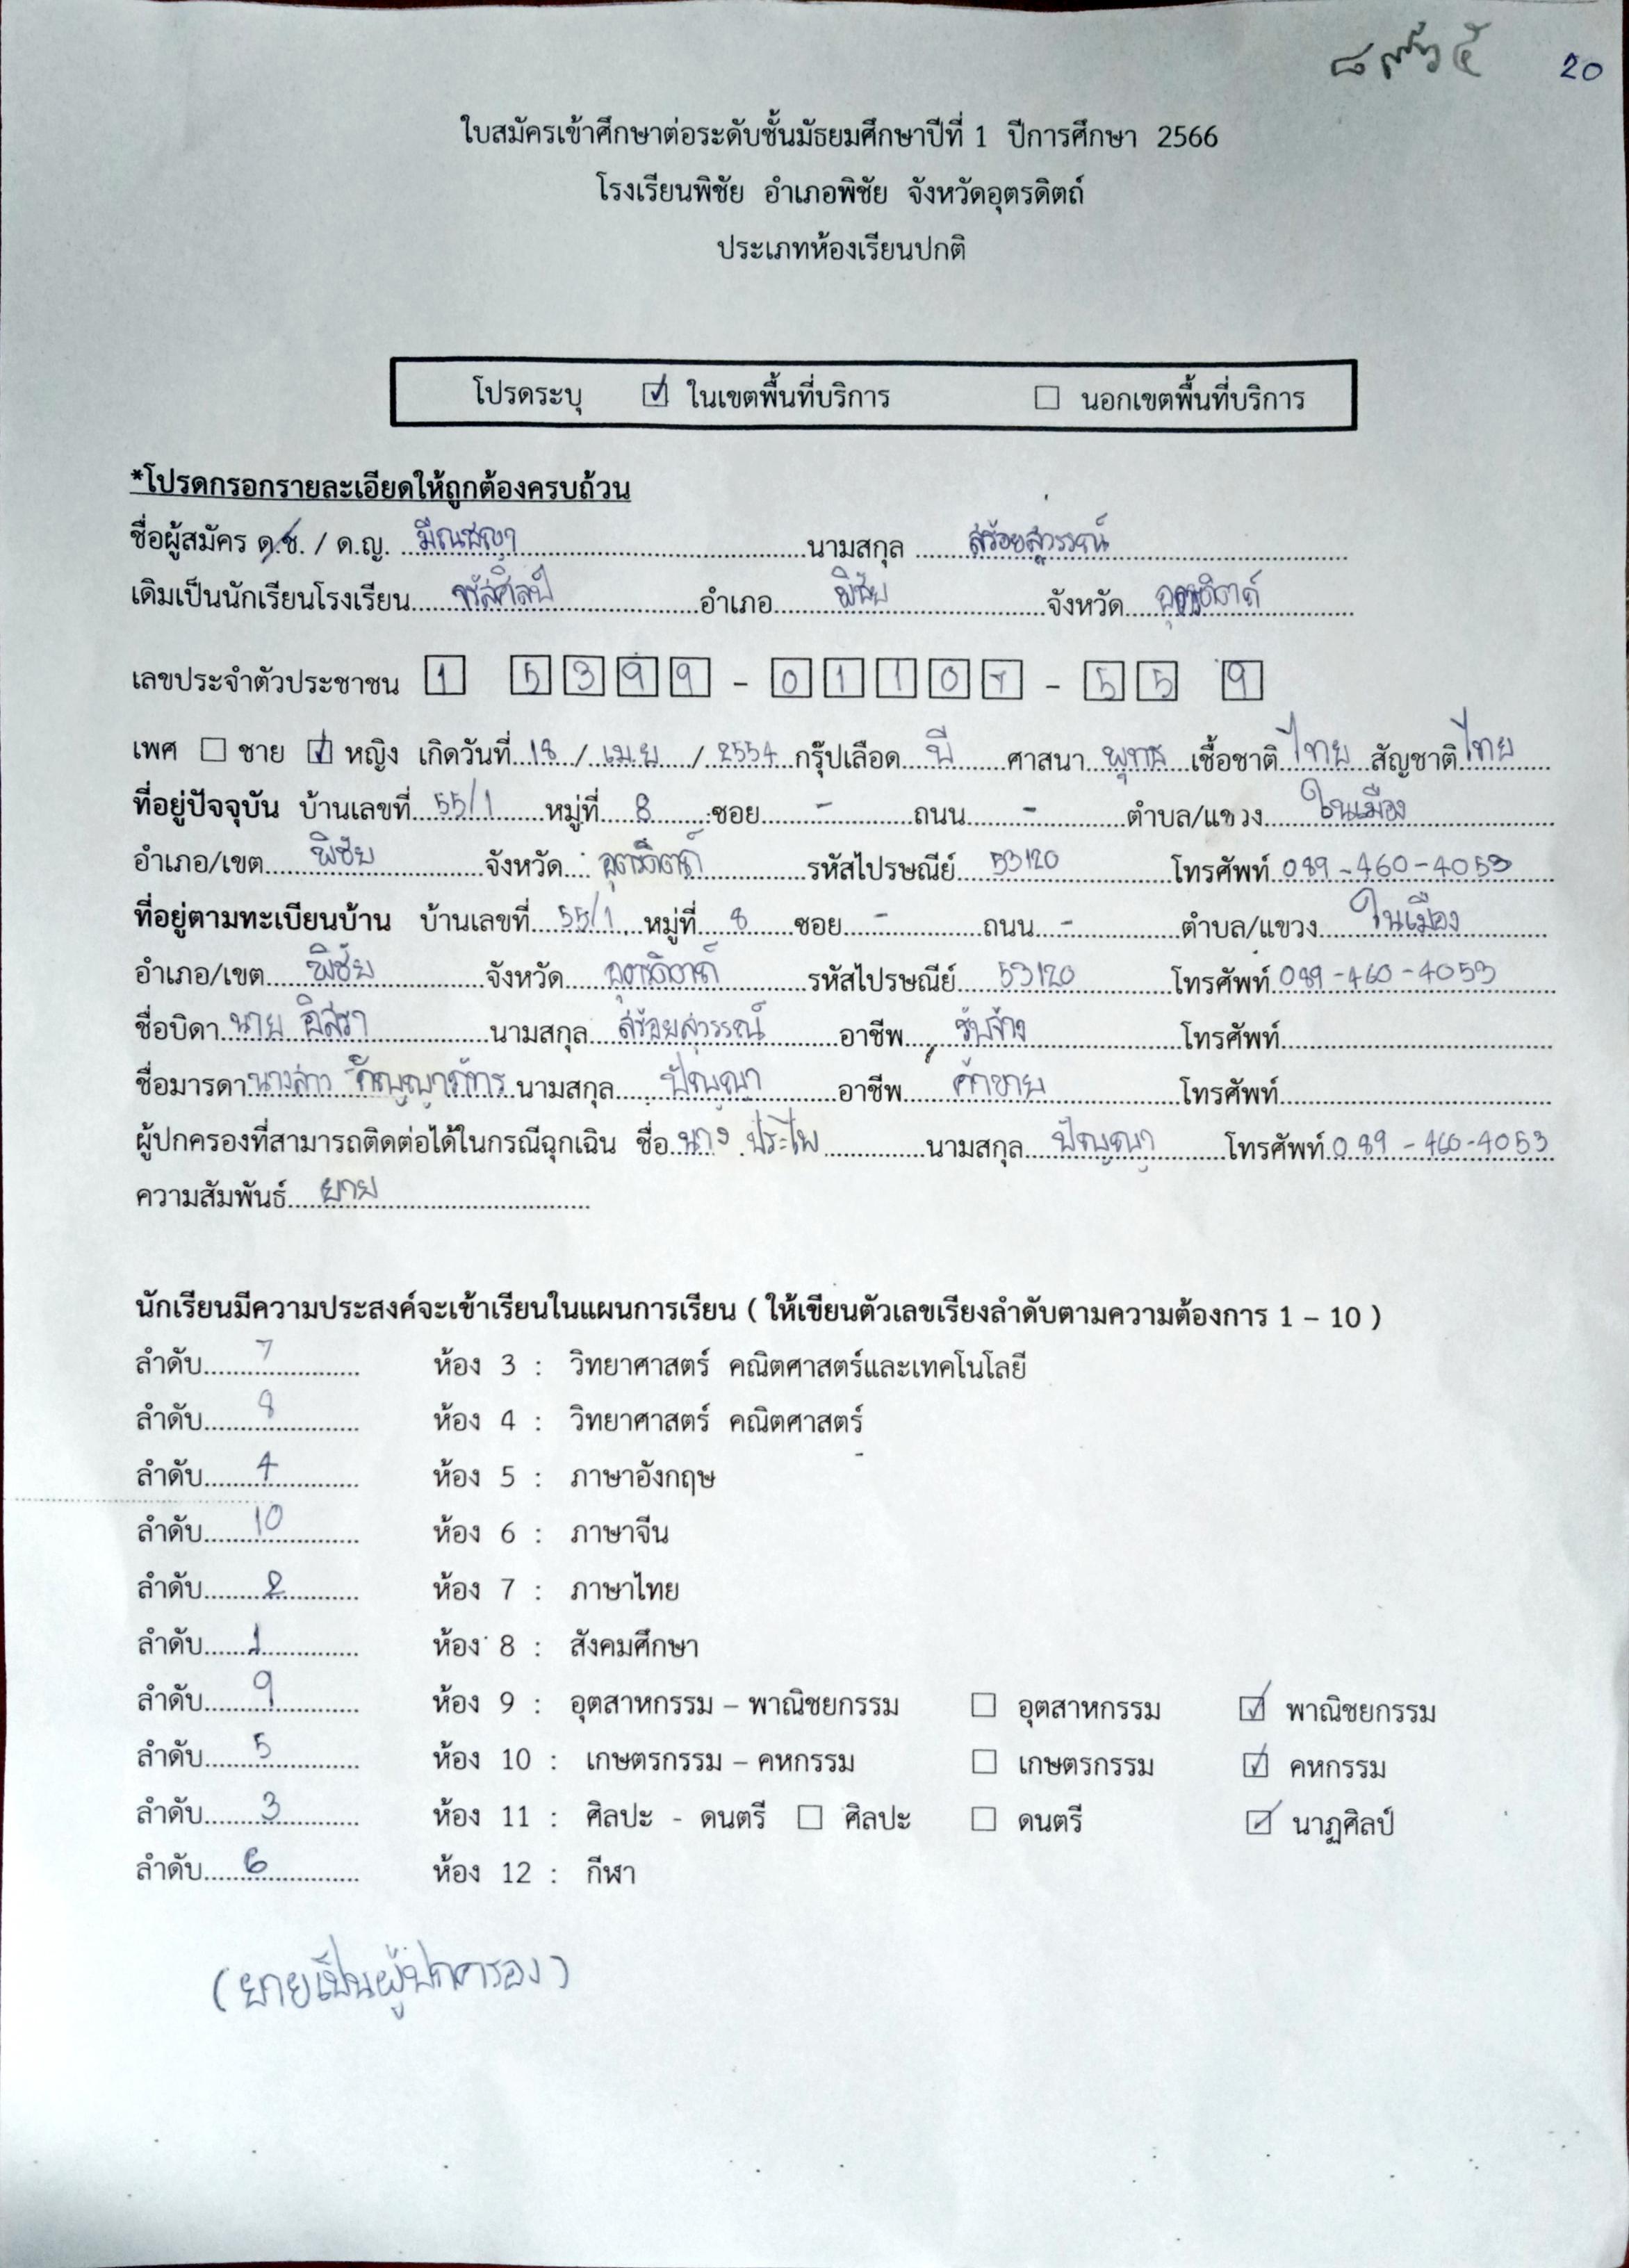 20
ใบสมัครเข้าศึกษาต่อระดับชั้นมัธยมศึกษาปีที่ 1 ปีการศึกษา 2566
โรงเรียนพิชัย อำเภอพิชัย จังหวัดอุตรดิตถ์
ประเภทห้องเรียนปกติ
โปรดระบุ ☑ ในเขตพื้นที่บริการ ☐ นอกเขตพื้นที่บริการ
*โปรดกรอกรายละเอียดให้ถูกต้องครบถ้วน
ชื่อผู้สมัคร ด.ช. / ด.ญ. มีณชญา นามสกุล สร้อยสุวรรณ์
เดิมเป็นนักเรียนโรงเรียน อำเภอ พิชัย จังหวัด อุตรดิตถ์
เลขประจำตัวประชาชน 1 5399 - 0110 - 55 9
เพศ ☐ ชาย ☑ หญิง เกิดวันที่ 18 / เม.ย / 2554 กรุ๊ปเลือด บี ศาสนา พุทธ เชื้อชาติ ไทย สัญชาติ ไทย
ที่อยู่ปัจจุบัน บ้านเลขที่ 55/1 หมู่ที่ 8 ซอย - ถนน - ตำบล/แขวง ในเมือง
อำเภอ/เขต พิชัย จังหวัด อุตรดิตถ์ รหัสไปรษณีย์ 53120 โทรศัพท์ 089-460-4053
ที่อยู่ตามทะเบียนบ้าน บ้านเลขที่ 55/1 หมู่ที่ 8 ซอย - ถนน - ตำบล/แขวง ในเมือง
อำเภอ/เขต พิชัย จังหวัด อุตรดิตถ์ รหัสไปรษณีย์ 53120 โทรศัพท์ 089-460-4053
ชื่อบิดา นาย อิสรา นามสกุล สร้อยสุวรรณ์ อาชีพ รับจ้าง โทรศัพท์
ชื่อมารดา นางสาว กัญญาภัทร นามสกุล ปัญญา อาชีพ ค้าขาย โทรศัพท์
ผู้ปกครองที่สามารถติดต่อได้ในกรณีฉุกเฉิน ชื่อ นาง ประไพ นามสกุล ปัญญา โทรศัพท์ 089-460-4053
ความสัมพันธ์ ยาย
นักเรียนมีความประสงค์จะเข้าเรียนในแผนการเรียน ( ให้เขียนตัวเลขเรียงลำดับตามความต้องการ 1 – 10 )
ลำดับ 7 ห้อง 3 : วิทยาศาสตร์ คณิตศาสตร์และเทคโนโลยี
ลำดับ 8 ห้อง 4 : วิทยาศาสตร์ คณิตศาสตร์
ลำดับ 4 ห้อง 5 : ภาษาอังกฤษ
ลำดับ 10 ห้อง 6 : ภาษาจีน
ลำดับ 2 ห้อง 7 : ภาษาไทย
ลำดับ 1 ห้อง 8 : สังคมศึกษา
ลำดับ 9 ห้อง 9 : อุตสาหกรรม – พาณิชยกรรม ☐ อุตสาหกรรม ☑ พาณิชยกรรม
ลำดับ 5 ห้อง 10 : เกษตรกรรม – คหกรรม ☐ เกษตรกรรม ☑ คหกรรม
ลำดับ 3 ห้อง 11 : ศิลปะ - ดนตรี ☐ ศิลปะ ☐ ดนตรี ☑ นาฏศิลป์
ลำดับ 6 ห้อง 12 : กีฬา
(ยายเป็นผู้ปกครอง)